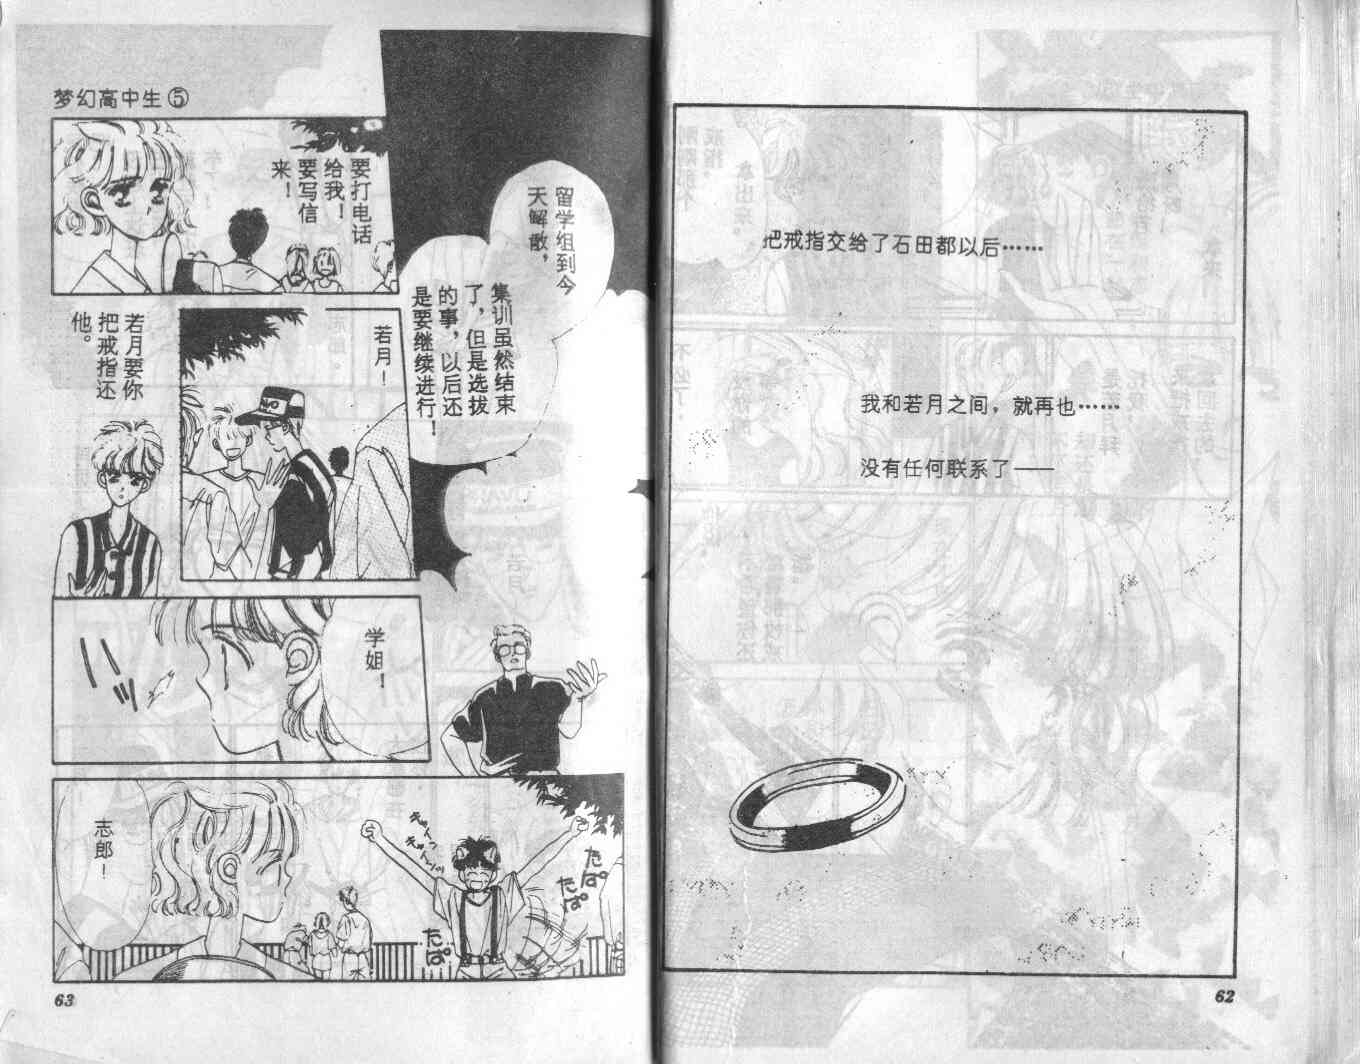 把戒指交给了石田都以后……
我和若月之间，就再也……
没有任何联系了——
62
梦幻高中生⑤
留学组到今
天解散，
集训虽然结束
了，但是选拔
的事，以后还
是要继续进行！
要打电话
给我！
要写信
来！
若月！
若月要你
把戒指还
他。
学姐！
志郎！
きゅんっ
きゅんっ
たぱ
たぱ
たぱ
63